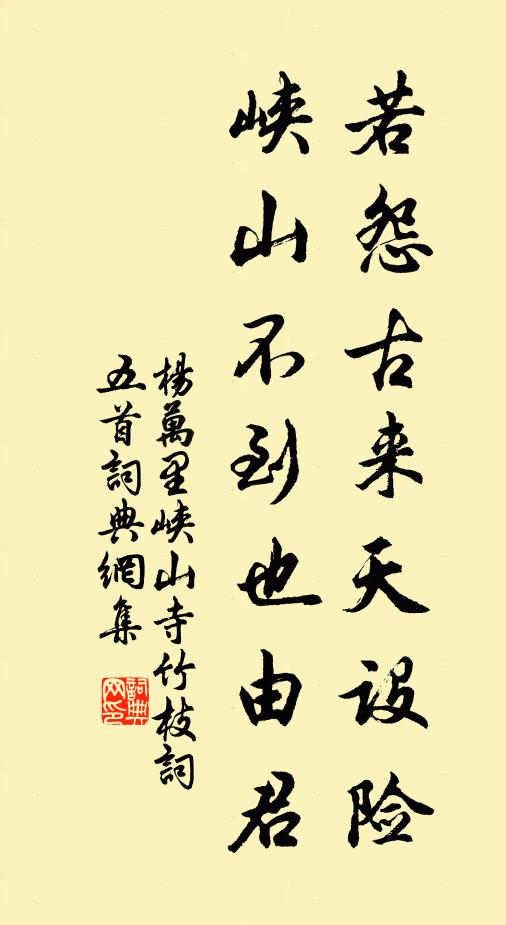 若怨古来天设险
峡山不到也由君
楊萬里峡山寺竹枝詞
五首詞典網集
詞典网印